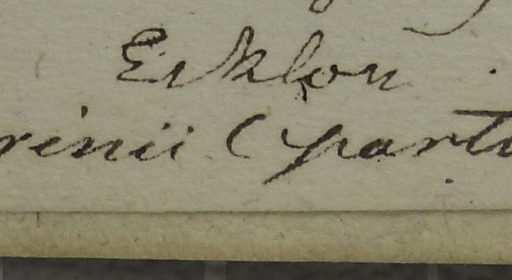 Ecklon.
rinii (parti